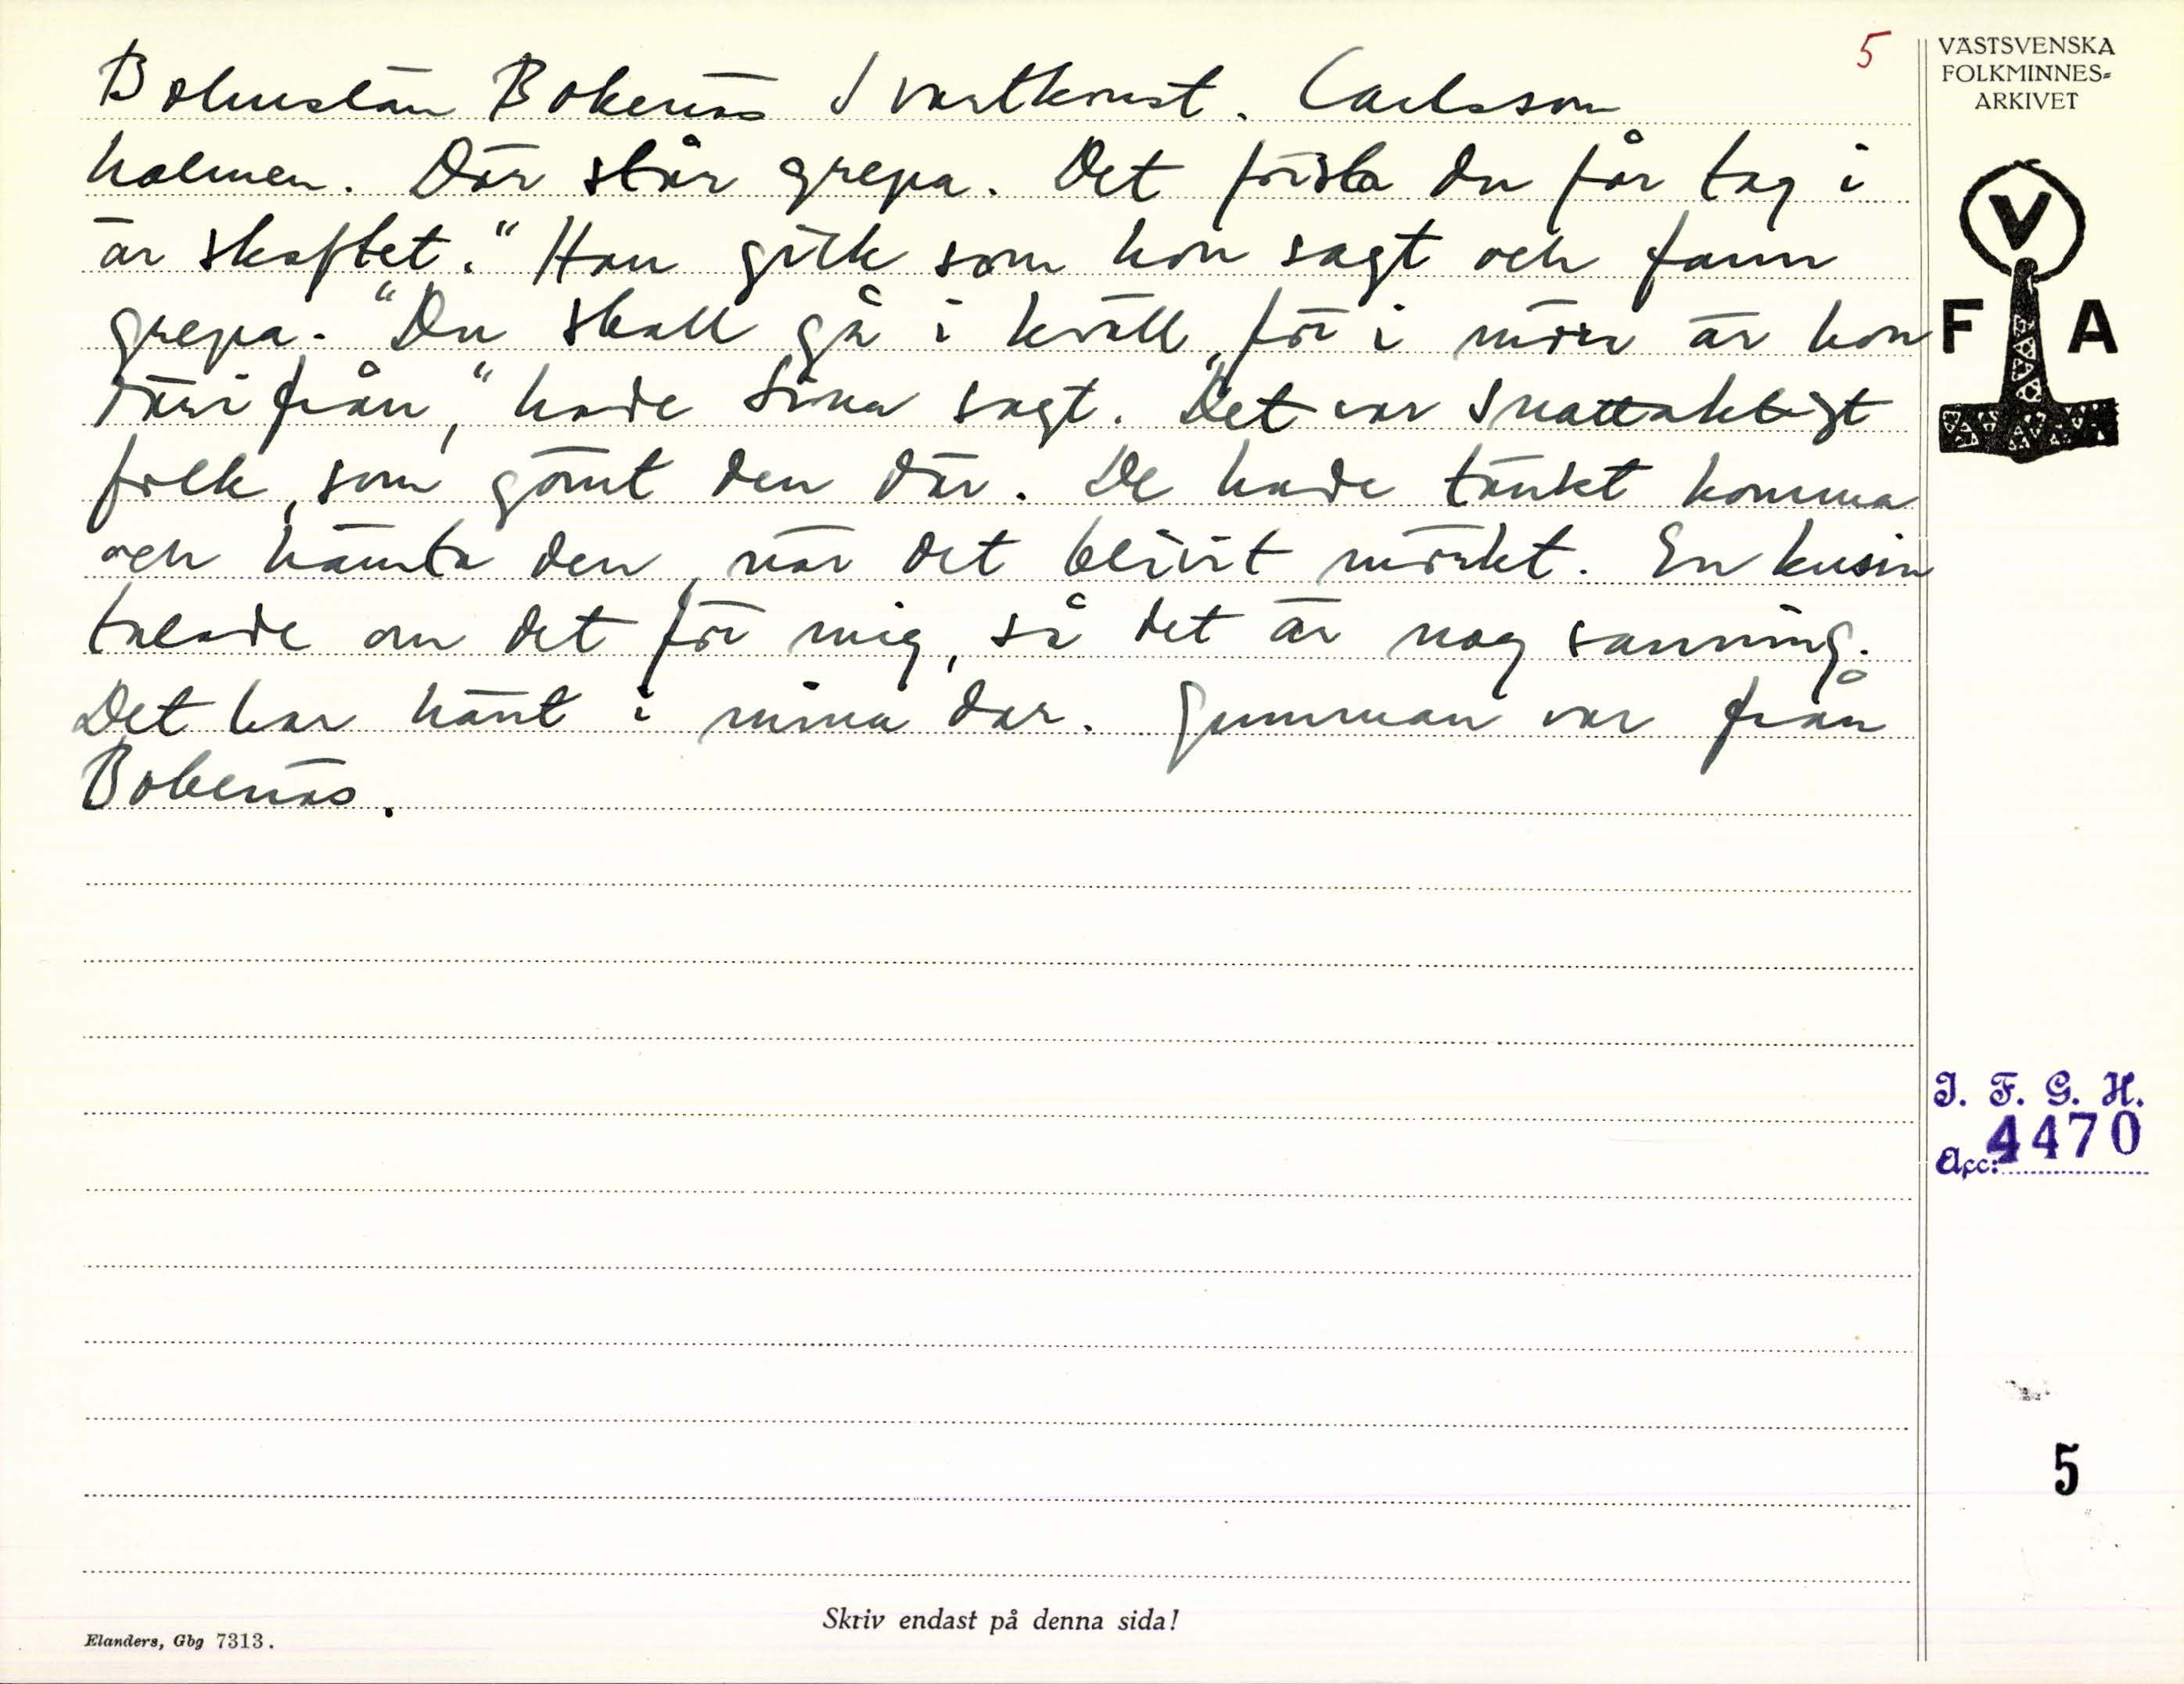 Bohuslän Bokenäs Svartkonst. Carlsson
5
VÄSTSVENSKA
FOLKMINNES-
ARKIVET
halmen. Där står grepa. Det första du får tag i
är skaftet." Han gick som hon sagt och fann
grepa. "Du skall gå i kväll, för i mörr är hon
därifrån," hade Sina sagt. Det var snattaktigt
folk, som gömt den där. De hade tänkt komma
och hämta den, när det blivit mörkt. En kusin
talade om det för mig, så det är nog sanning.
Det har hänt i mina dar. Gumman var från
Bokenäs.
V
F A
I. F. G. H.
Acc: 4470
5
Skriv endast på denna sida!
Elanders, Gbg 7313.